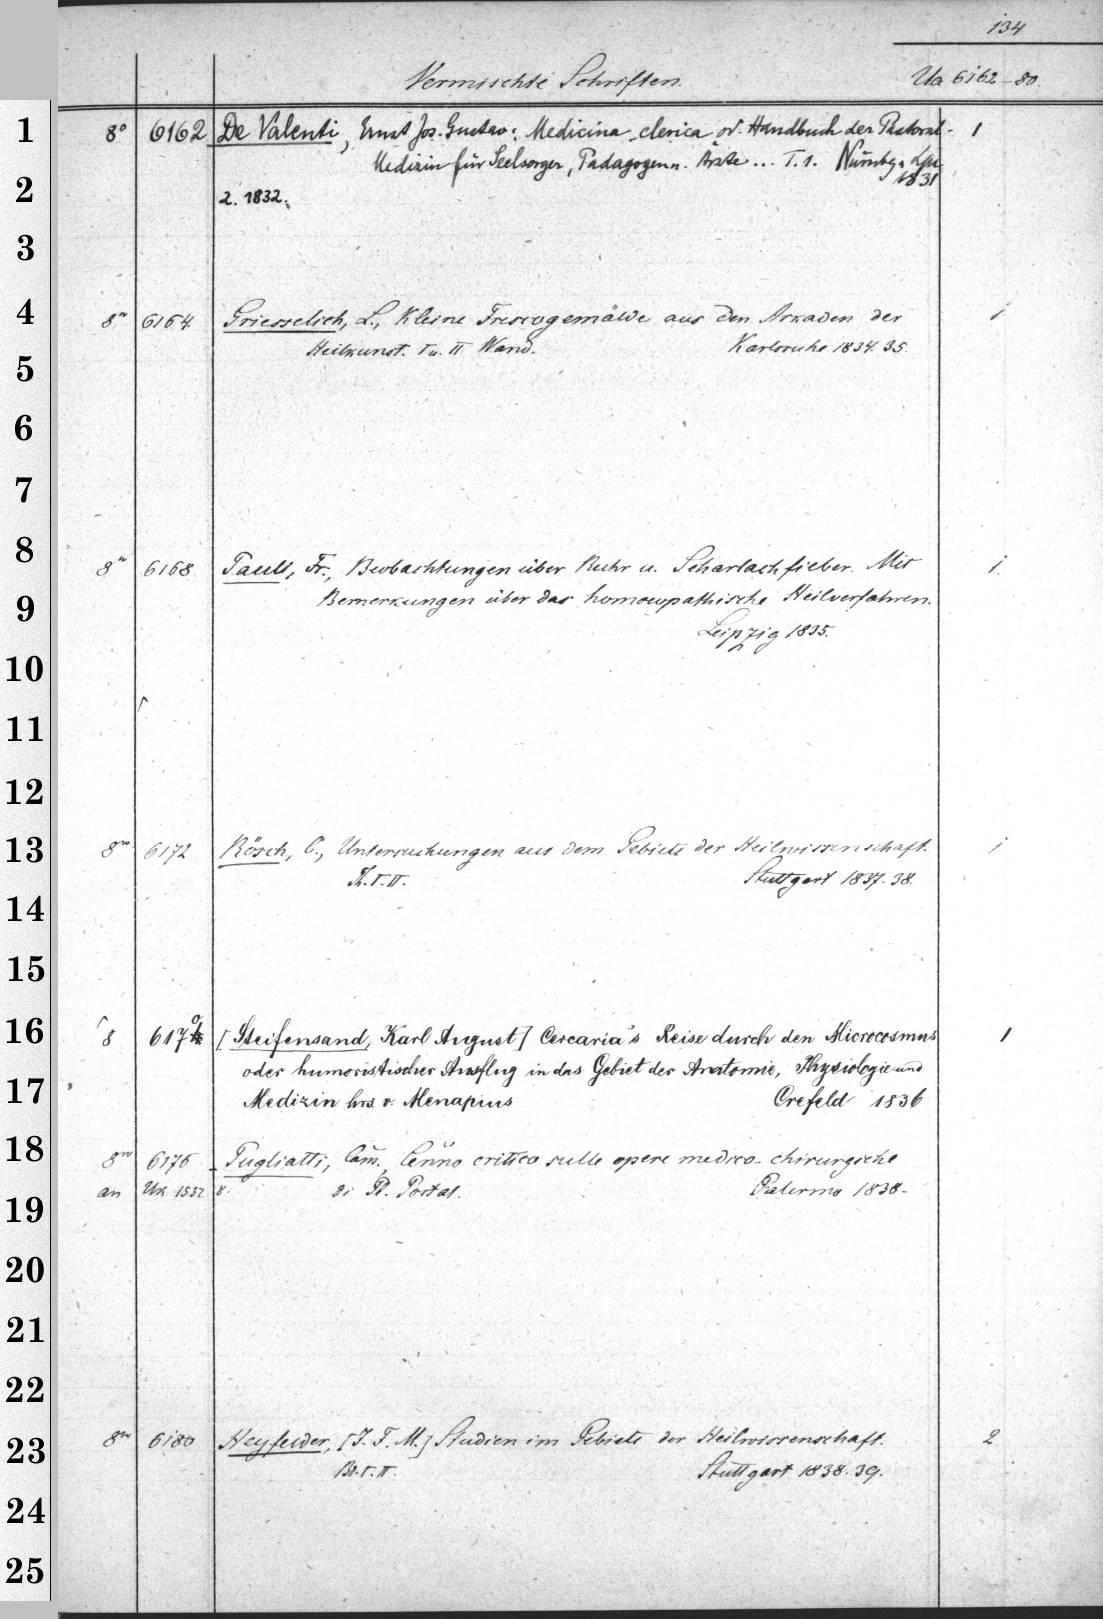 134
Vermischte Schriften. Ua 6162-80.
1 8° 6162 De Valenti, Ernst Jos. Gustav: Medicina clerica od. Handbuch der Pastoral- 1
Medizin für Seelsorger, Pädagogen u. Ärzte ... T. 1. Nürnbg u. Lpz
1831
2 2. 1832.
3
4 8° 6164 Griesselich, L., Kleine Frescogemälde aus den Arkaden der 1
Heilkunst. I u. II Wand. Karlsruhe 1834. 35.
5
6
7
8 8° 6168 Pauli, Fr., Beobachtungen über Ruhr u. Scharlachfieber. Mit 1.
9 Bemerkungen über das homoeopathische Heilverfahren.
Leipzig 1835.
10
11
12
13 8° 6172 Rösch, C., Untersuchungen aus dem Gebiete der Heilwissenschaft. 1
Th. I. II. Stuttgart 1837. 38.
14
15
16 8 617 [Steifensand, Karl August] Cercaria's Reise durch den Microcosmus 1
oder humoristischer Ausflug in das Gebiet der Anatomie, Physiologie und
17 Medizin hrs. v. Menapius Crefeld 1836
18 8° 6176 Pugliatti, Cam., Cenno critico sulle opere medico-chirurgiche
an Uk 1552 8. di Pl. Portal. Palermo 1838.
19
20
21
22
23 8° 6180 Heyfelder, [J. F. M.] Studien im Gebiete der Heilwissenschaft. 2
Bd. I. II. Stuttgart 1838. 39.
24
25